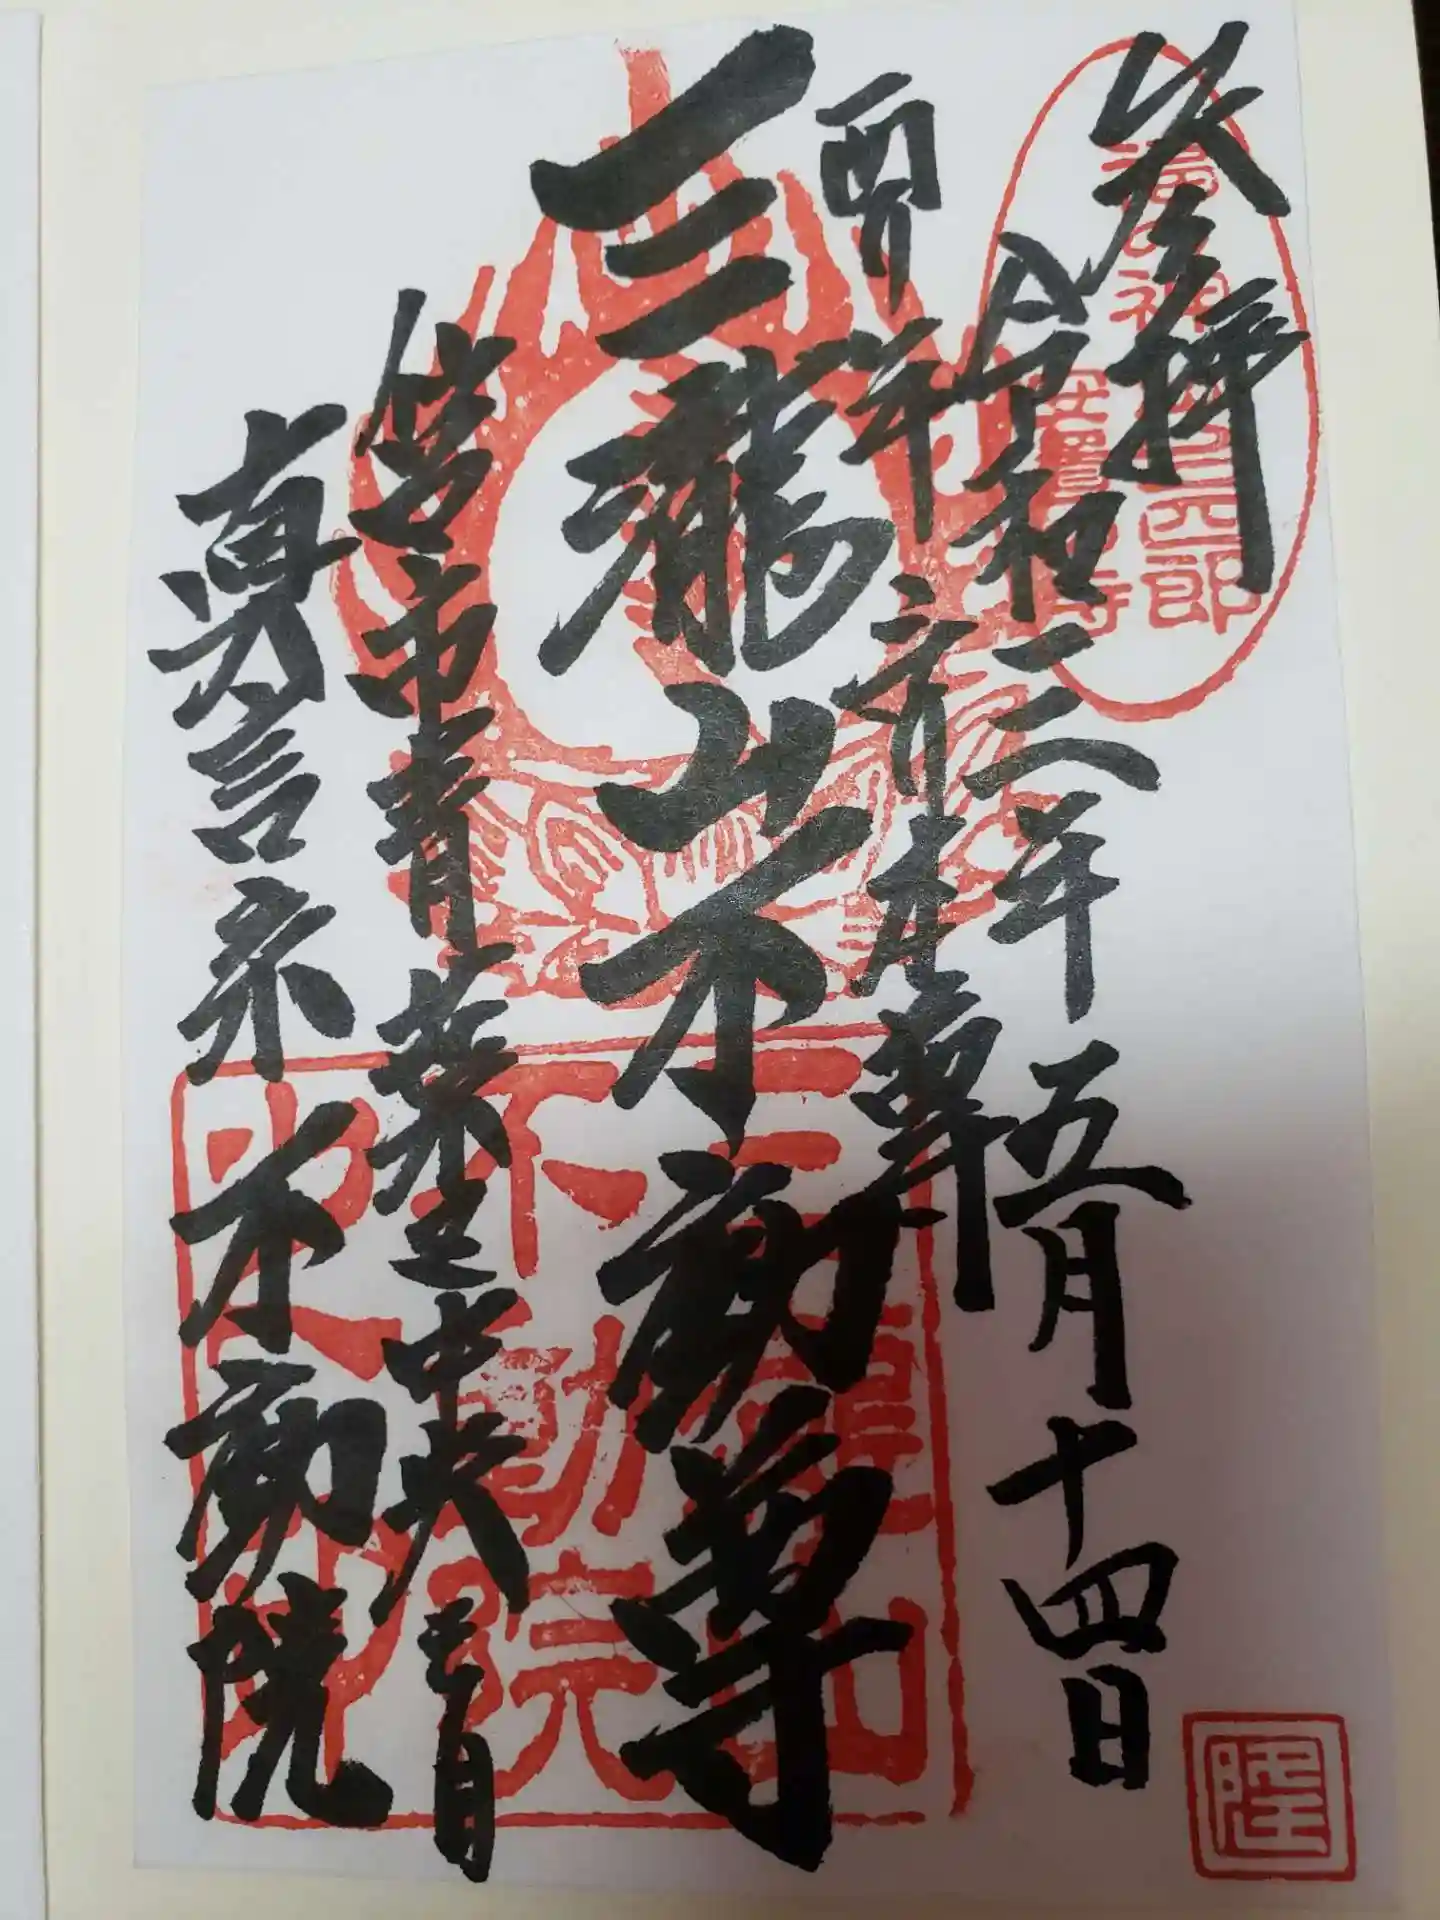 参拝
令和三年五月十四日
本尊
三瀧山不動尊
仙台市青葉区中央二丁目
真言宗不動院
三瀧山
不動院
隆